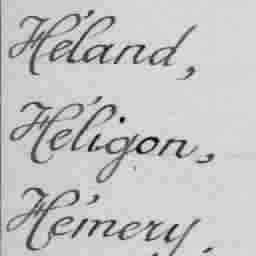 Héland,
Héligon,
Hémery.